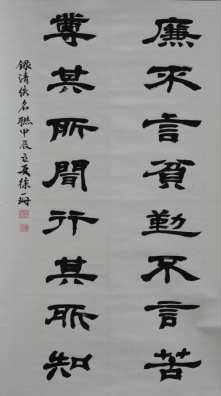 廉不言貧勤不言苦
尊其所聞行其所知
錄清佚名聯甲辰立夏徐一珊